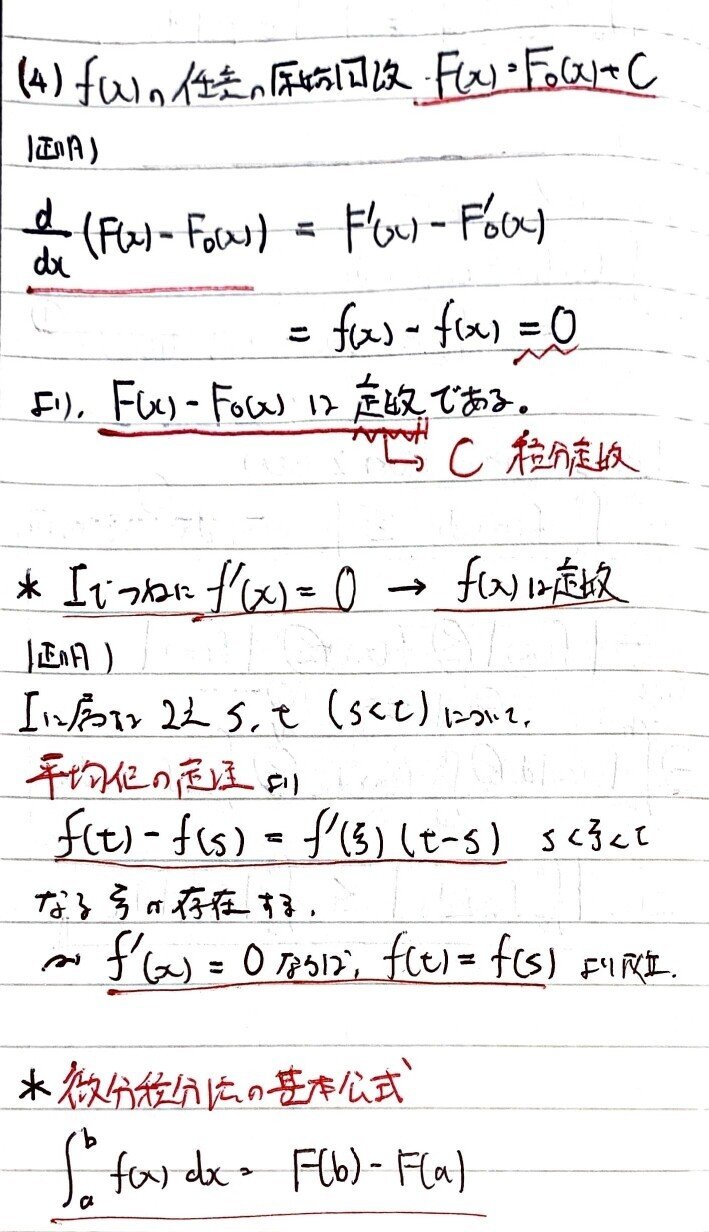 (4) f(x)の任意の原始関数 F(x)=F₀(x)+C
証明)
d/dx (F(x) - F₀(x)) = F'(x) - F₀'(x)
= f(x) - f(x) = 0
より、F(x) - F₀(x) は 定数である。
↳ C 積分定数
* Iでつねに f'(x) = 0 → f(x)は定数
証明)
Iに属する 2点 s, t (s<t) について、
平均値の定理 より
f(t) - f(s) = f'(ξ) (t-s) s<ξ<t
なる ξ が存在する.
〜 f'(x) = 0 ならば, f(t) = f(s) より成立.
* 微分積分法の基本公式
∫ₐᵇ f(x) dx = F(b) - F(a)